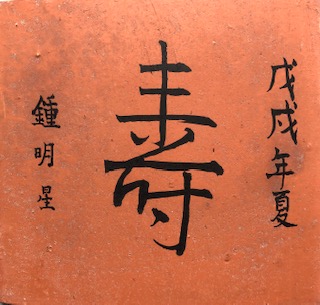 戊戌年夏
寿
鍾明星